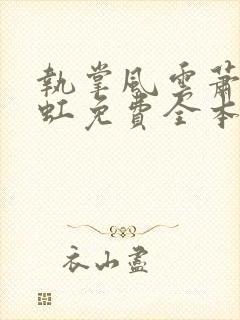 執掌風雲蕭
虹免費全本
衣山盡